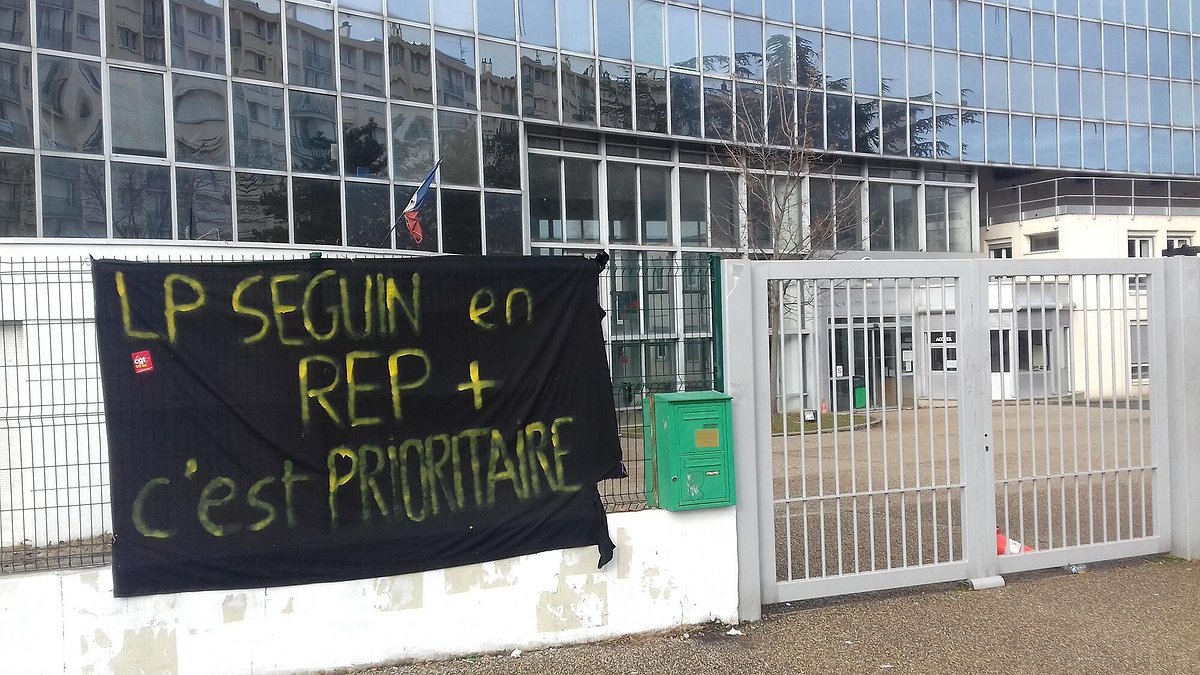 LP SEGUIN en
REP +
c'est PRIORITAIRE
cgt
ACCUEIL